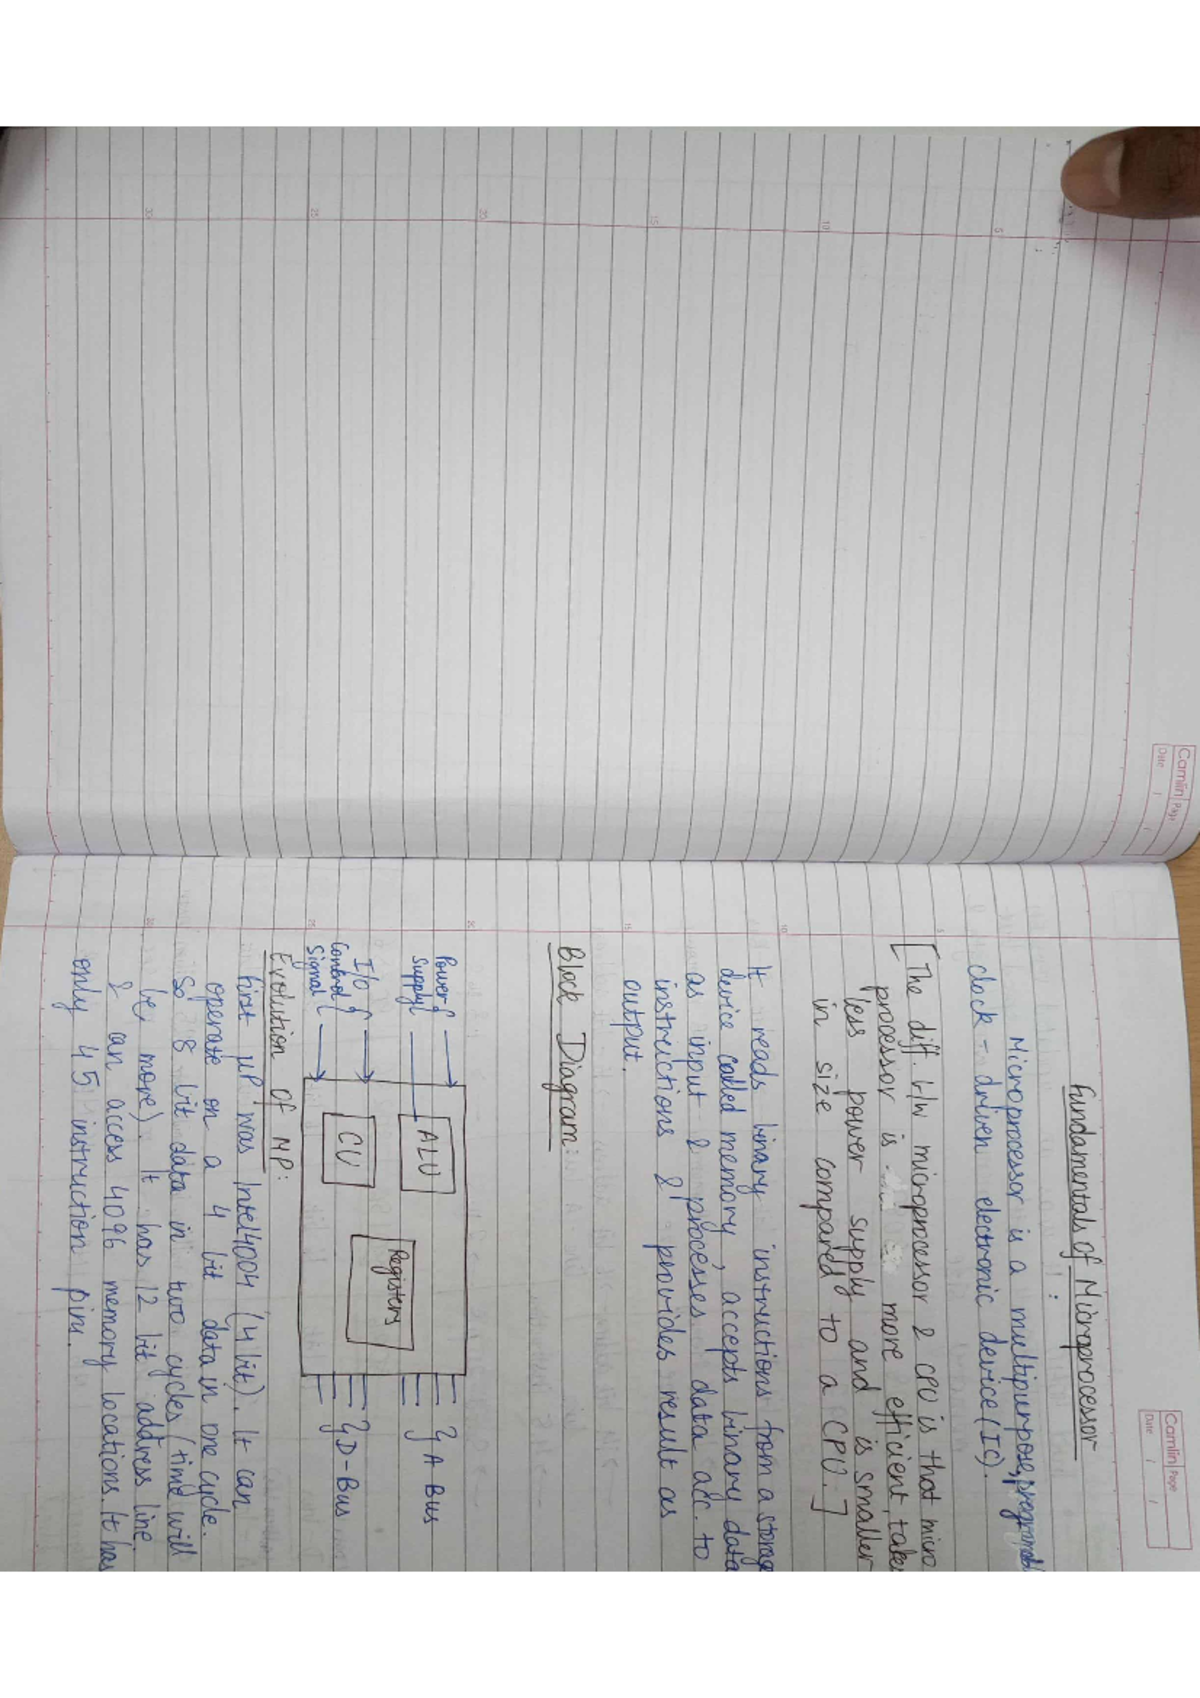 Camlin Page
Date / /
5
10
15
20
25
30
Camlin Page
Date / /
Fundamentals of Microprocessor
Microprocessor is a multipurpose, programmabl
clock - driven electronic device (IC).
[The diff. b/w microprocessor & CPU is that micro
processor is more efficient, takes
less power supply and is smaller
in size compared to a CPU.]
It reads binary instructions from a storage
device called memory, accepts binary data
as input & processes data acc. to
instructions & provides result as
output.
Block Diagram:
Power
Supply
ALU
A Bus
Registers
I/O
Control
Signal
CU
D-Bus
Evolution of MP:
First μP was Intel 4004 (4 bit). It can
operate on a 4 bit data in one cycle.
So 8 bit data in two cycles (time will
be more). It has 12 bit address line
& can access 4096 memory locations. It has
only 45 instruction pins.